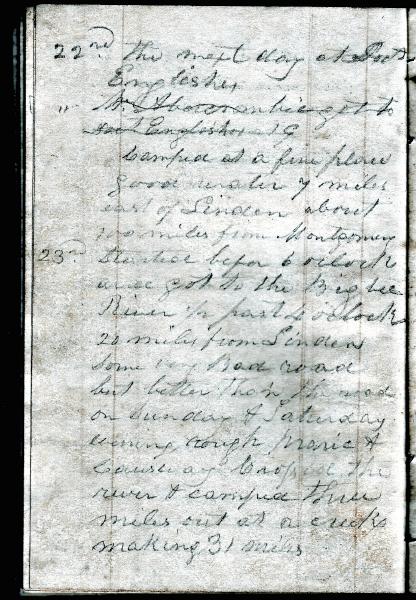 22nd the next day at Doct
Englishes
" Mr Abercrombie got to
Englishes at 9
Camped at a fine place
good water 7 miles
east of Linden about
100 miles from Montgomery
23rd Started before 6 oclock
and got to the Bigbee
River ½ past 4 oclock
20 miles from Linden
some very Bad road
but better than the road
on Sunday & Saturday
evening rough Prarie &
Causeway Crossed the
river & camped three
miles out at a creek
making 31 miles